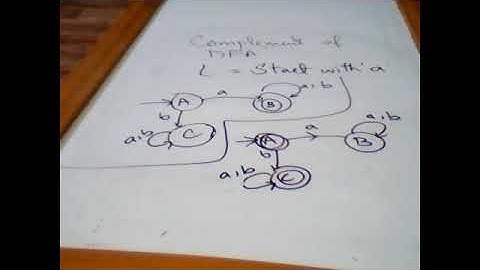 Complement of
DFA
L = Start with a
A a B a,b
b
a,b C
A a B a,b
b
a,b C